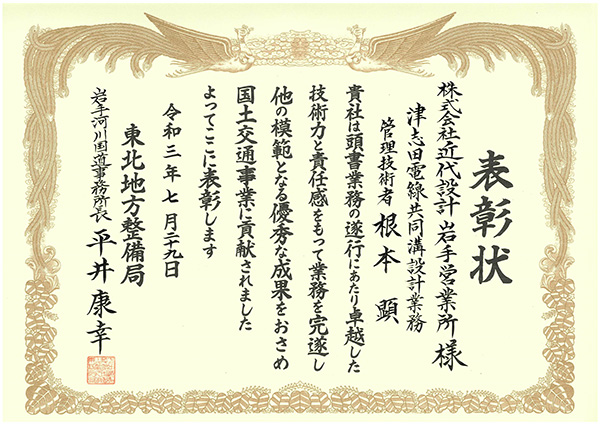 表彰状
株式会社近代設計 岩手営業所 様
津志田電線共同溝設計業務
管理技術者 根本 顕
貴社は頭書業務の遂行にあたり卓越した
技術力と責任感をもって業務を完遂し
他の模範となる優秀な成果をおさめ
国土交通事業に貢献されました
よってここに表彰します
令和三年七月二十九日
東北地方整備局
岩手河川国道事務所長 平井康幸